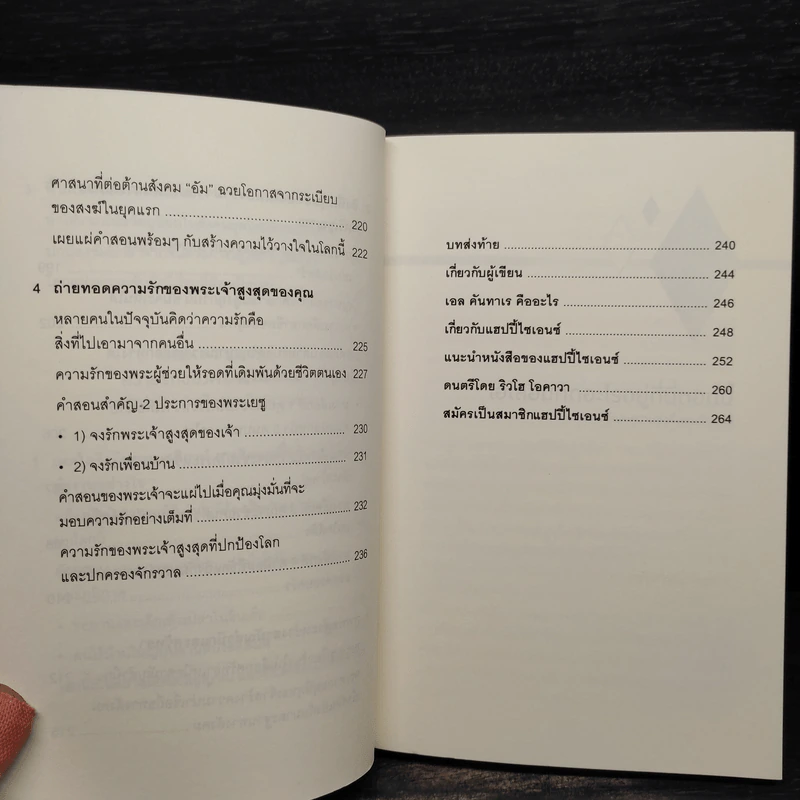 ศาสนาที่ต่อต้านสังคม “อัม” ฉวยโอกาสจากระเบียบ
ของสงฆ์ในยุคแรก ........................................ 220
เผยแผ่คำสอนพร้อมๆ กับสร้างความไว้วางใจในโลกนี้ 222
4 ถ่ายทอดความรักของพระเจ้าสูงสุดของคุณ
หลายคนในปัจจุบันคิดว่าความรักคือ
สิ่งที่ไปเอามาจากคนอื่น ................................ 225
ความรักของพระผู้ช่วยให้รอดที่เดิมพันด้วยชีวิตตนเอง 227
คำสอนสำคัญ 2 ประการของพระเยซู
• 1) จงรักพระเจ้าสูงสุดของเจ้า ........................ 230
• 2) จงรักเพื่อนบ้าน ........................................ 231
คำสอนของพระเจ้าจะแผ่ไปเมื่อคุณมุ่งมั่นที่จะ
มอบความรักอย่างเต็มที่ ................................ 232
ความรักของพระเจ้าสูงสุดที่ปกป้องโลก
และปกครองจักรวาล .................................... 236
บทส่งท้าย ................................................ 240
เกี่ยวกับผู้เขียน ........................................ 244
เอล คันทาเร คืออะไร ................................ 246
เกี่ยวกับแฮปปี้ไซเอนซ์ ................................ 248
แนะนำหนังสือของแฮปปี้ไซเอนซ์ .................... 252
ดนตรีโดย ริวโฮ โอคาวา ............................ 260
สมัครเป็นสมาชิกแฮปปี้ไซเอนซ์ .................... 264